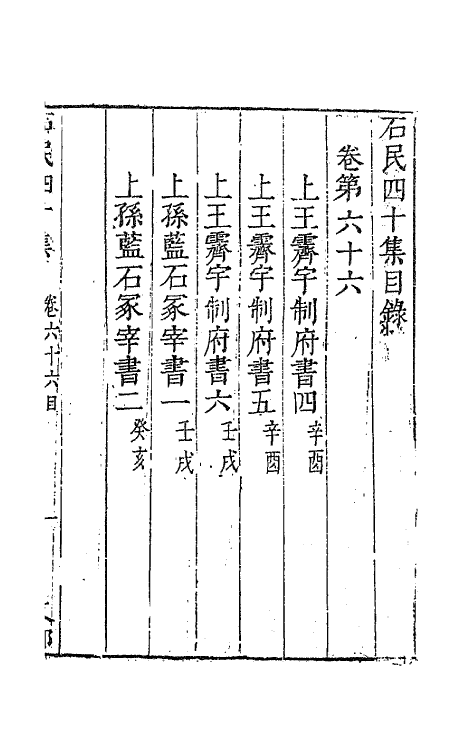 石民四十集目錄
卷第六十六
上王霽宇制府書四辛酉
上王霽宇制府書五辛酉
上王霽宇制府書六壬戌
上孫藍石冢宰書一壬戌
上孫藍石冢宰書二癸亥
石民四十集 卷六十六目 一